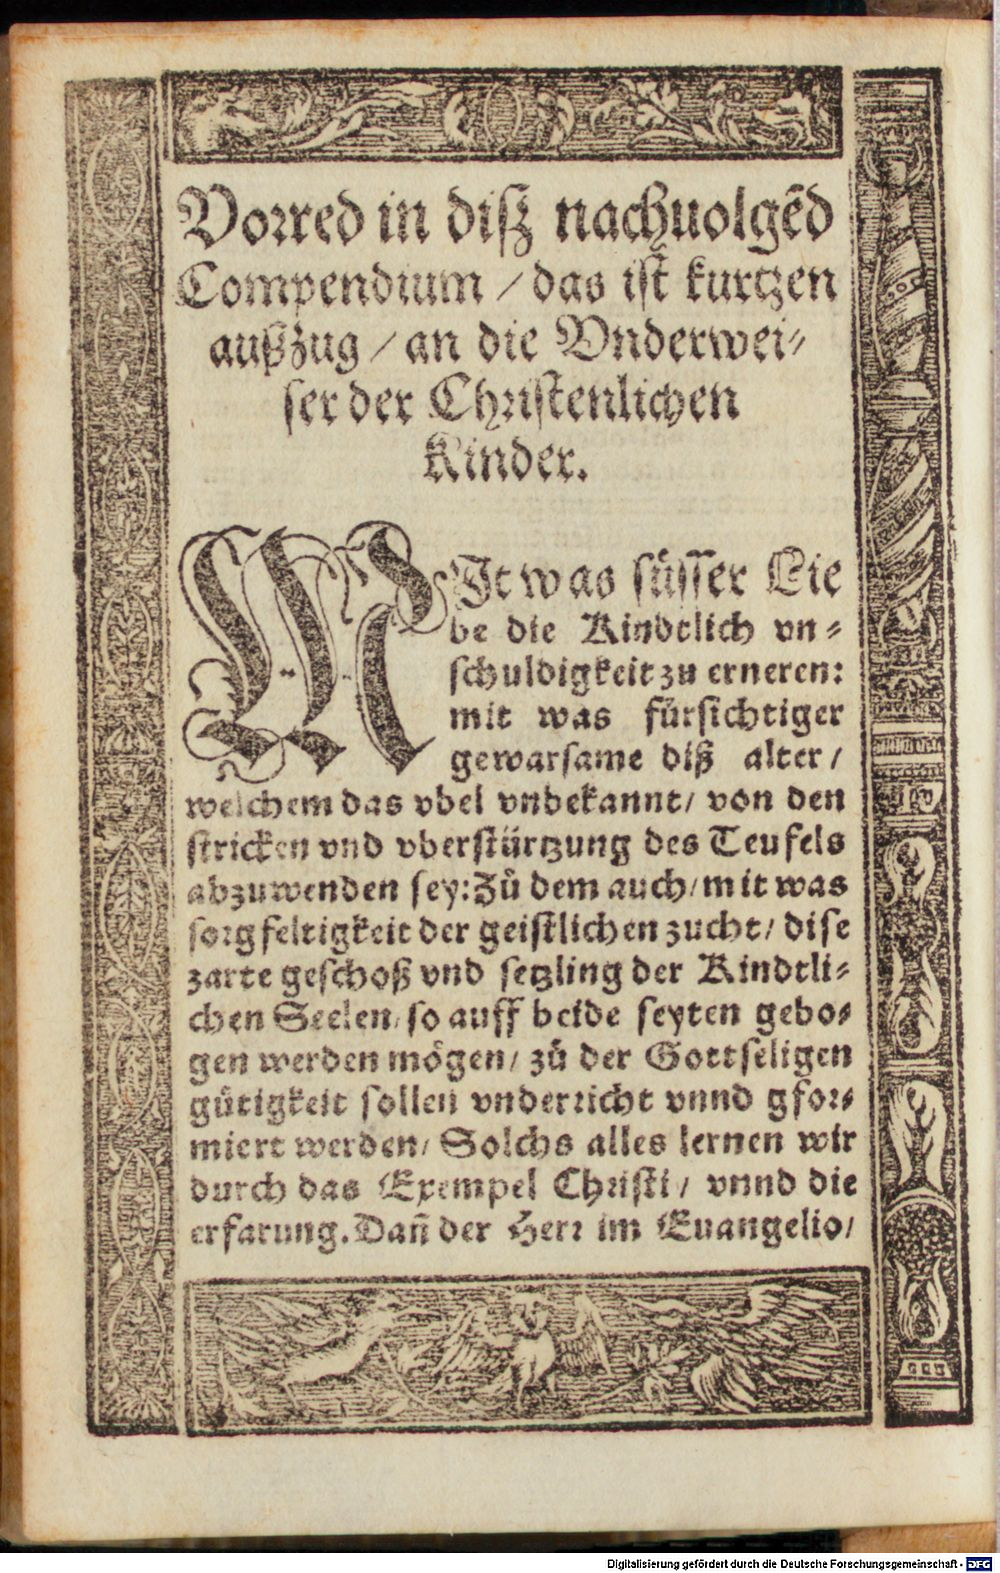 Vorred in disz nachuolgēd
Compendium / das ist kurtzen
außzug / an die Vnderwei⸗
ser der Christenlichen
Kinder.
MIt was süsser Lie
be die Kindtlich vn⸗
schuldigkeit zu erneren:
mit was fürsichtiger
gewarsame diß alter /
welchem das vbel vnbekannt / von den
stricken vnd vberstürtzung des Teufels
abzuwenden sey: Zů dem auch / mit was
sorgfeltigkeit der geistlichen zucht / dise
zarte geschoß vnd setzling der Kindtli⸗
chen Seelen / so auff beide seyten gebo⸗
gen werden mögen / zů der Gottseligen
gütigkeit sollen vnderricht vnnd gfor⸗
miert werden / Solchs alles lernen wir
durch das Exempel Christi / vnnd die
erfarung. Dañ der Herr im Euangelio /
Digitalisierung gefördert durch die Deutsche Forschungsgemeinschaft - DFG